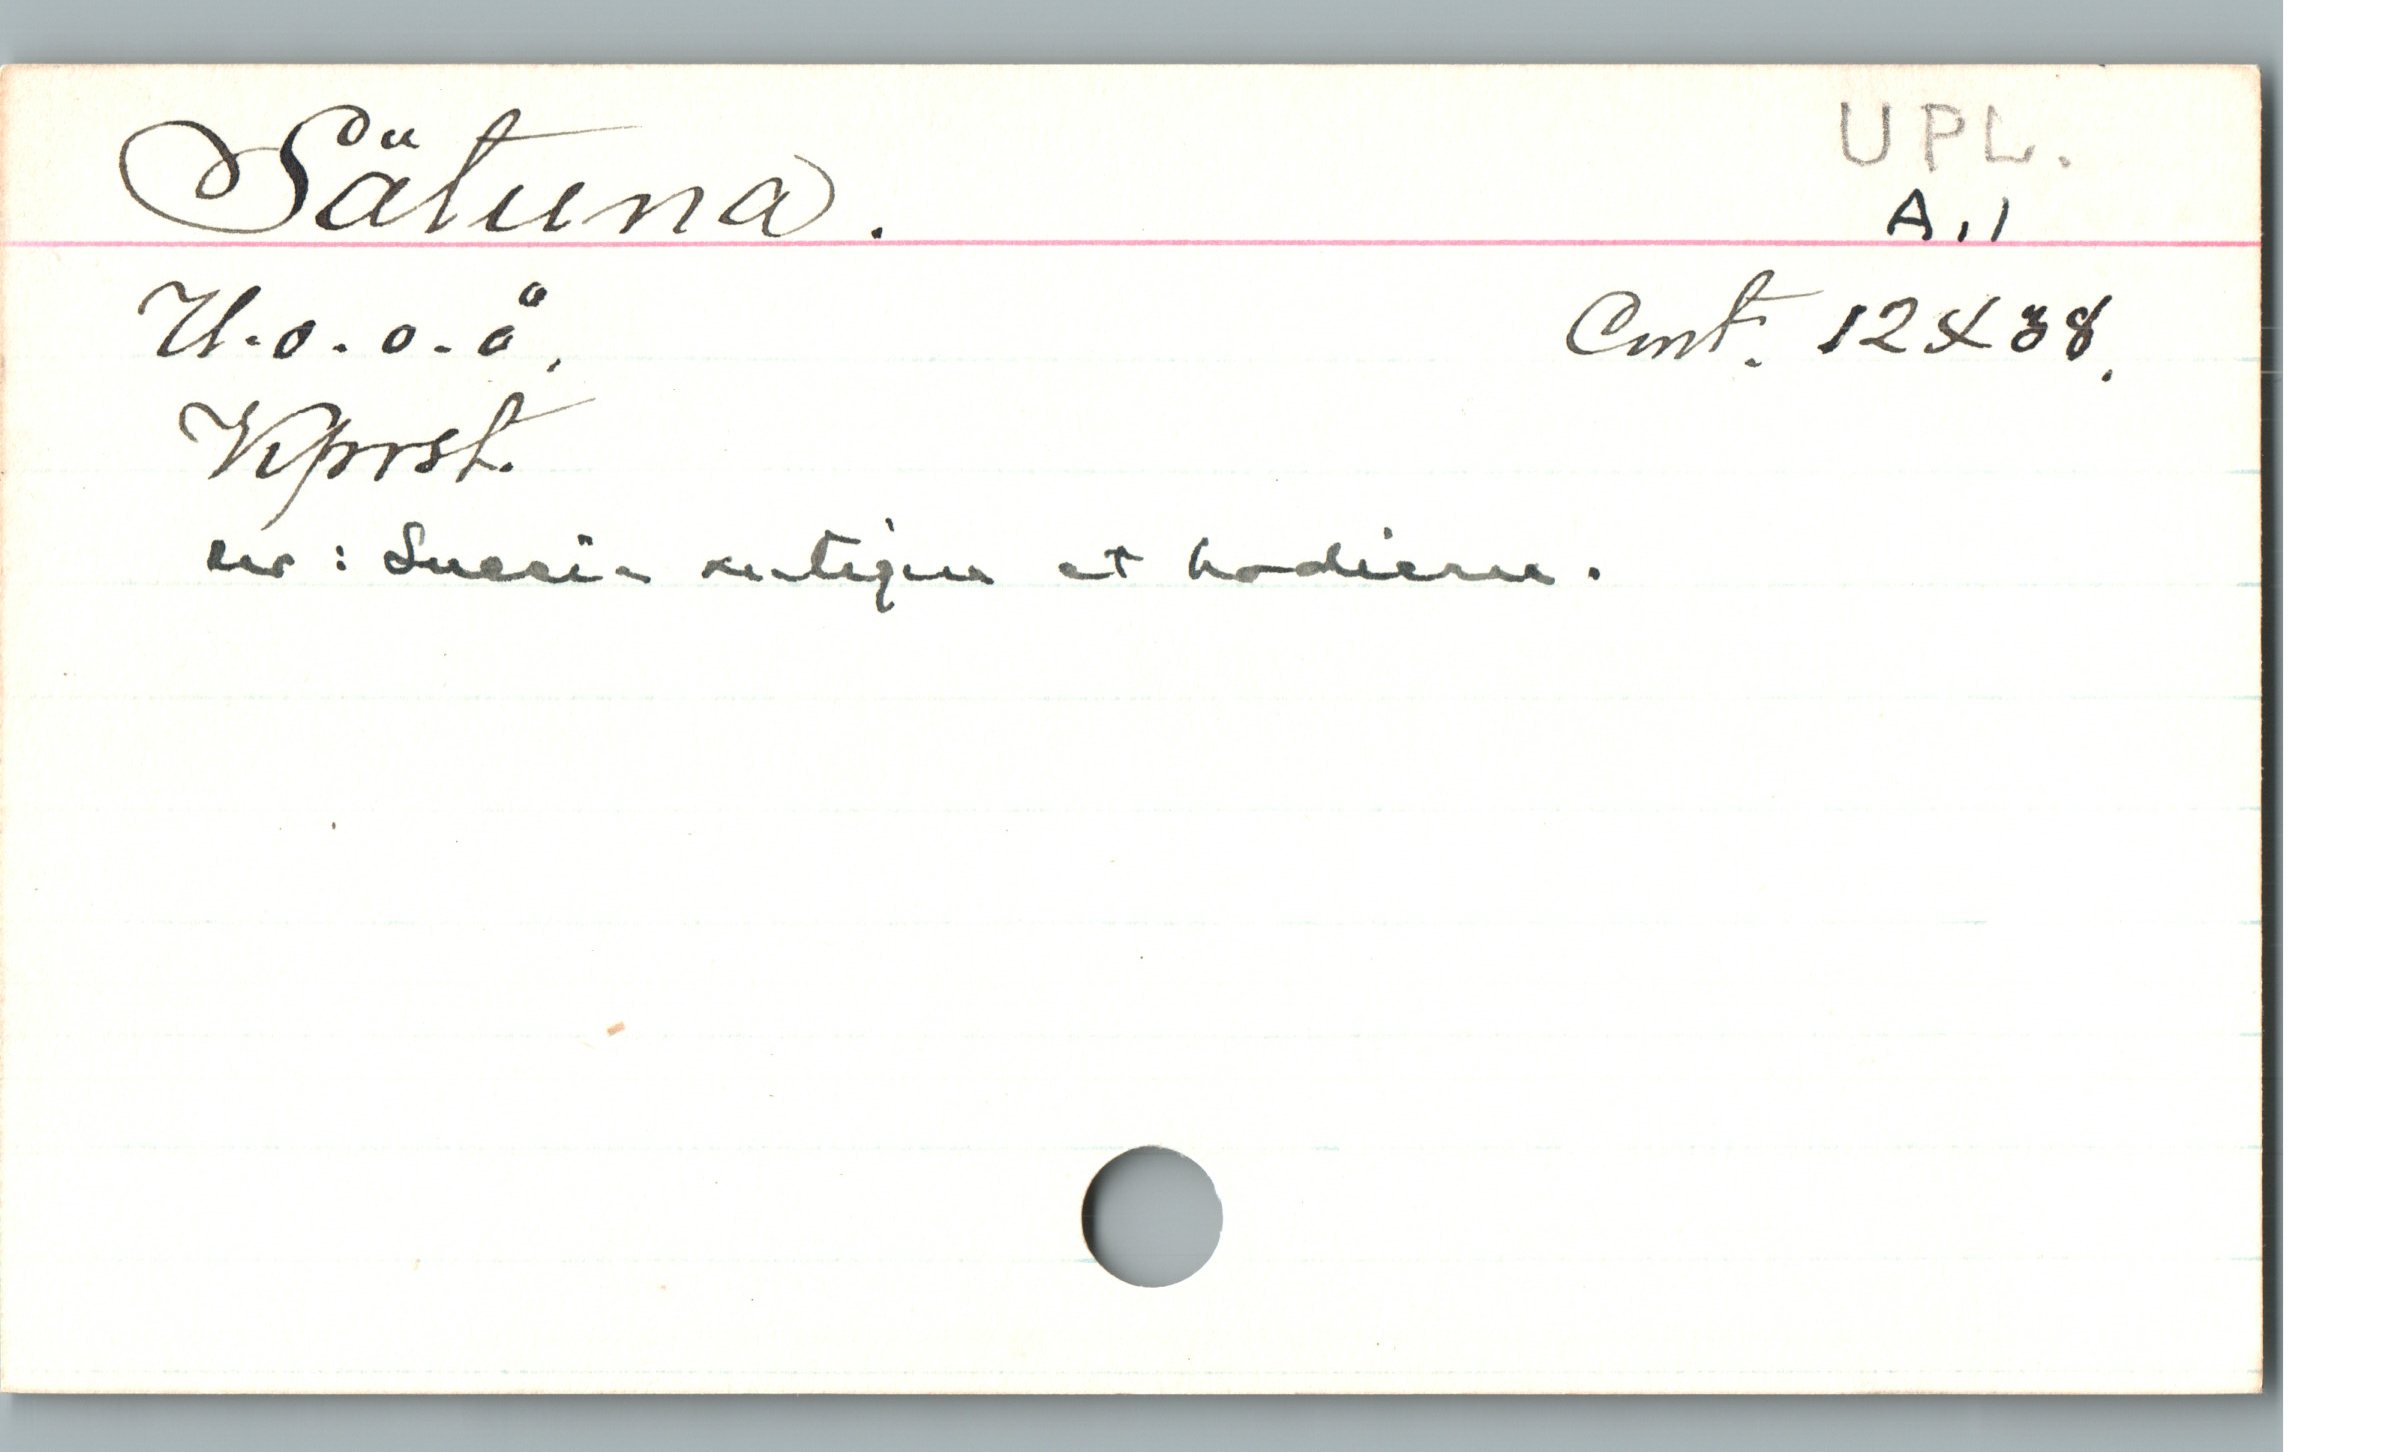 UPL.
Sätuna.
A.1
U.o.o.ö,
Cent. 12 X 38.
Kprst.
ur: Suecia antiqua et hodierna.